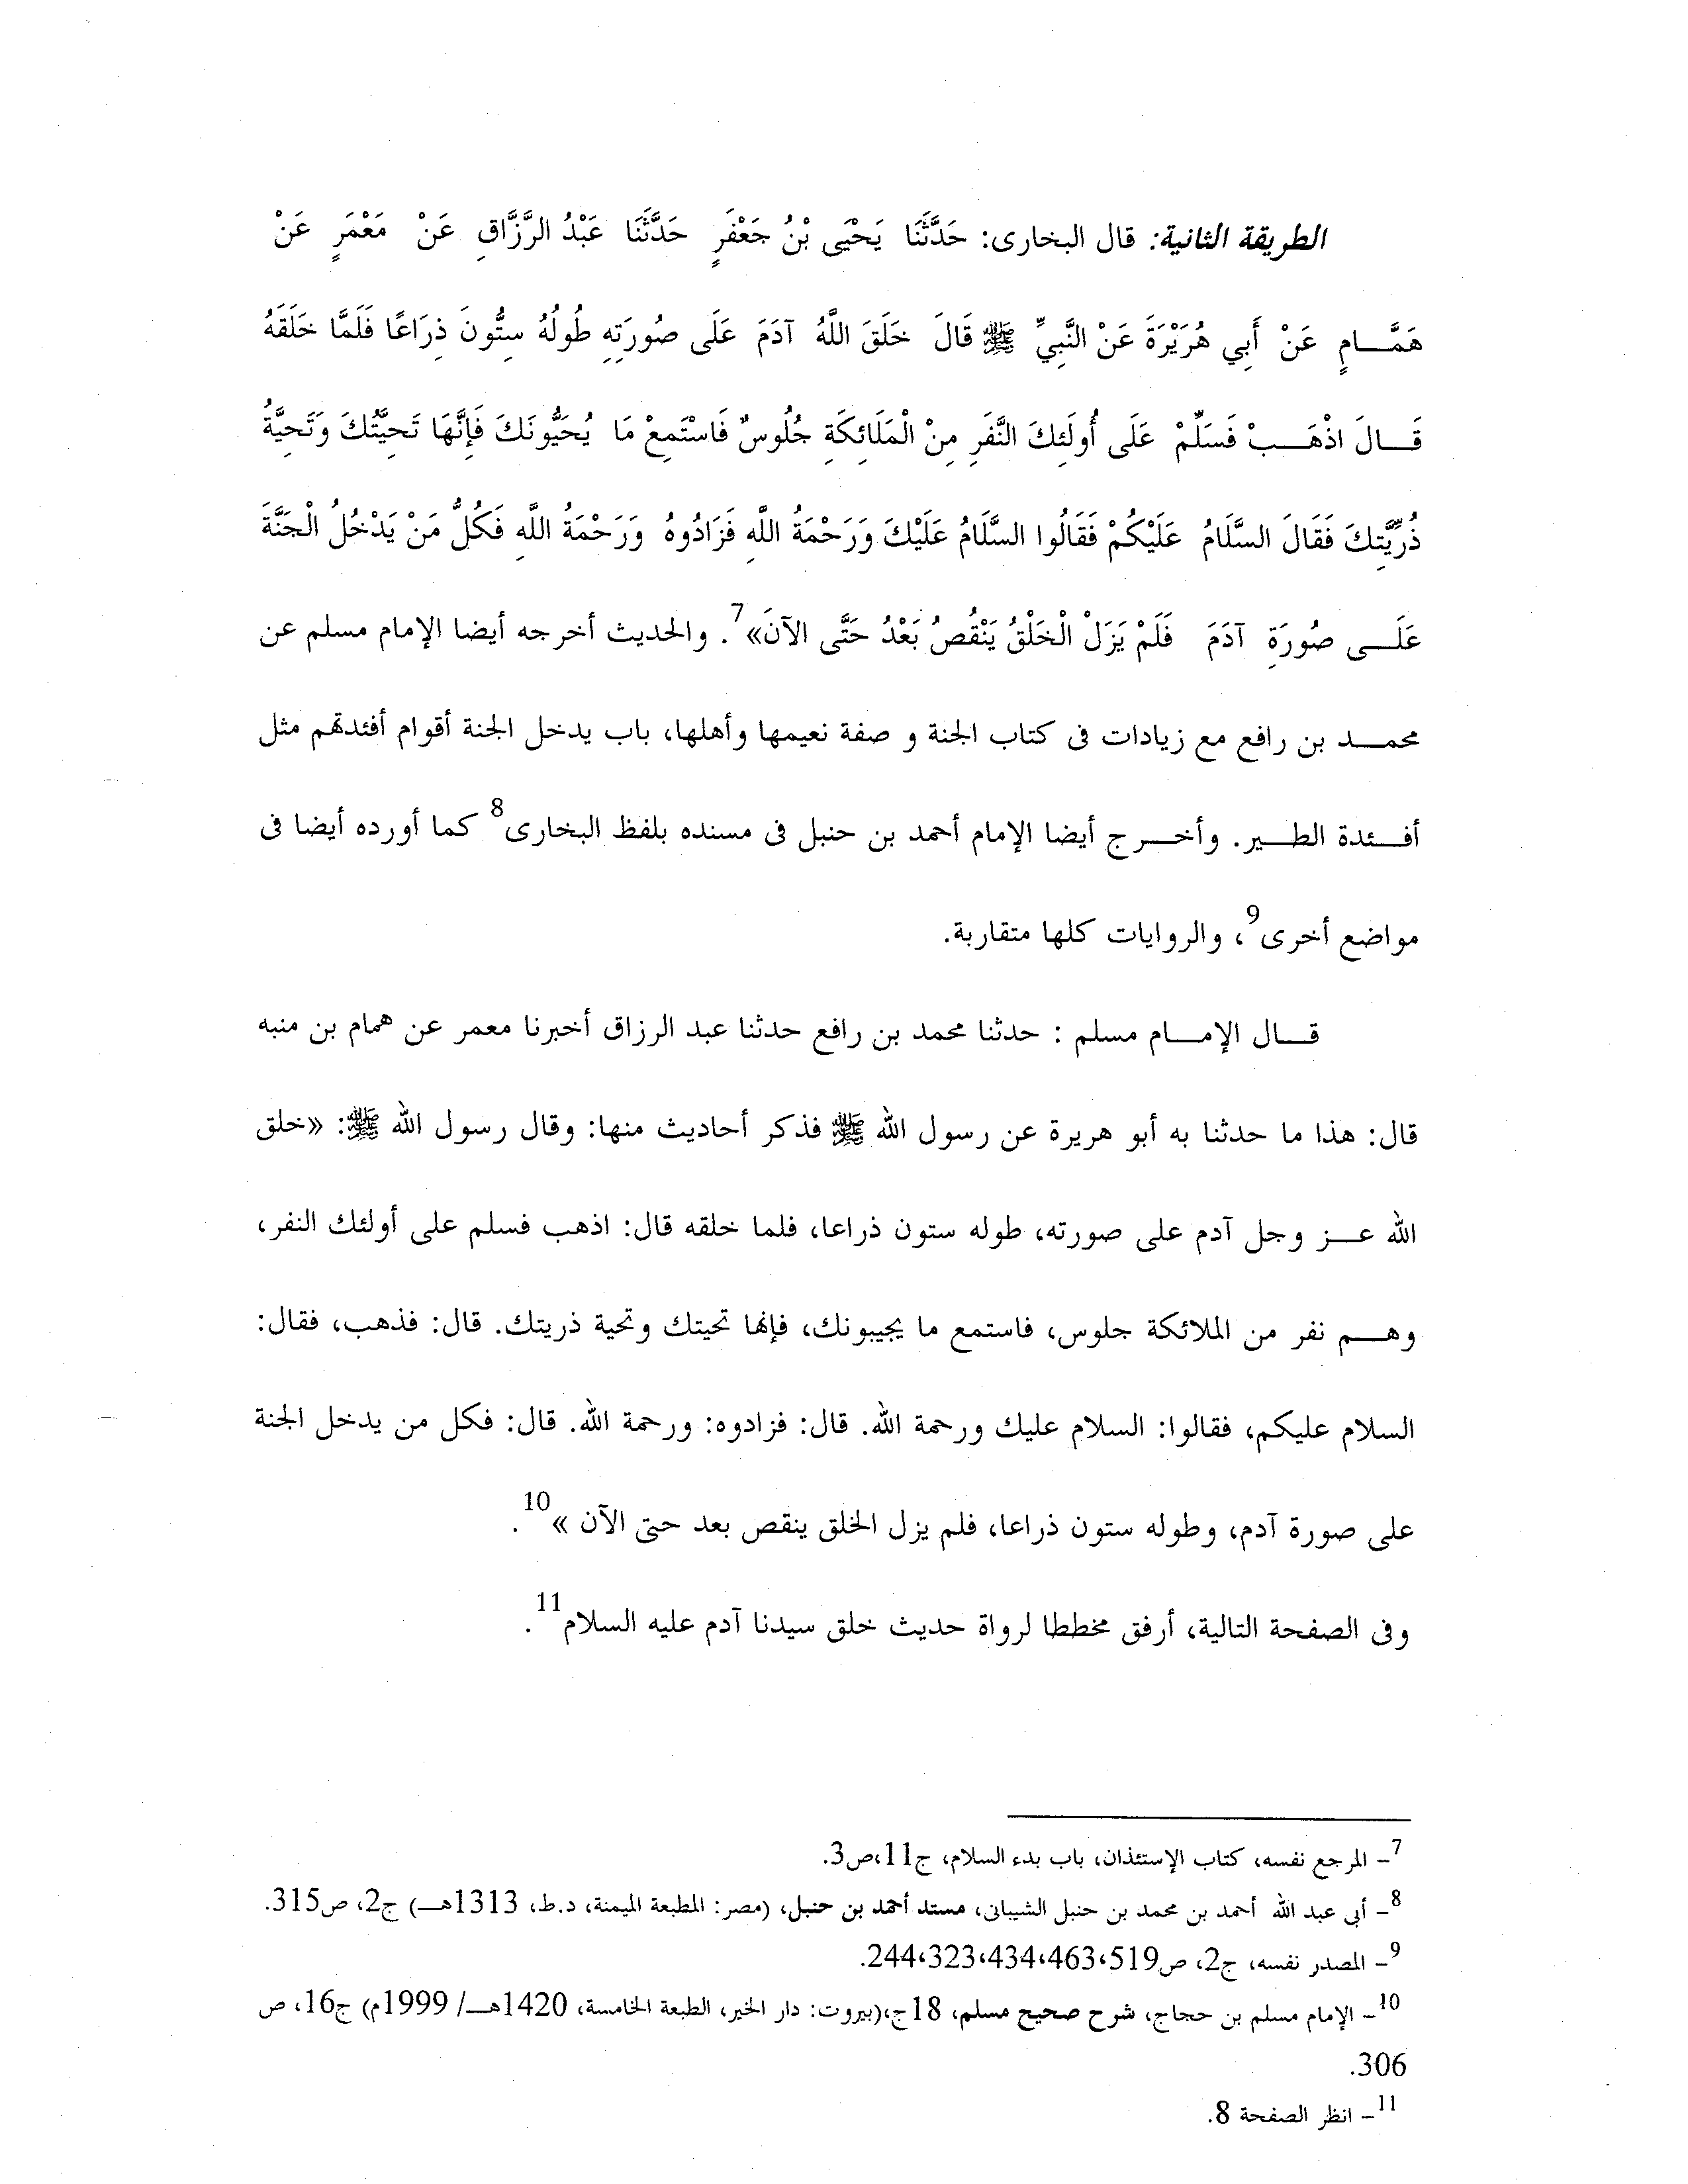 الطريقة الثانية: قال البخارى: حَدَّثَنَا يَحْيَى بْنُ جَعْفَرٍ حَدَّثَنَا عَبْدُ الرَّزَّاقِ عَنْ مَعْمَرٍ عَنْ
هَمَّـــامٍ عَنْ أَبِي هُرَيْرَةَ عَنْ النَّبِيِّ ﷺ قَالَ خَلَقَ اللَّهُ آدَمَ عَلَى صُورَتِهِ طُولُهُ سِتُّونَ ذِرَاعًا فَلَمَّا خَلَقَهُ
قَـــالَ اذْهَـــبْ فَسَلِّمْ عَلَى أُولَئِكَ النَّفَرِ مِنْ الْمَلَائِكَةِ جُلُوسٌ فَاسْتَمِعْ مَا يُحَيُّونَكَ فَإِنَّهَا تَحِيَّتُكَ وَتَحِيَّةُ
ذُرِّيَّتِكَ فَقَالَ السَّلَامُ عَلَيْكُمْ فَقَالُوا السَّلَامُ عَلَيْكَ وَرَحْمَةُ اللَّهِ فَزَادُوهُ وَرَحْمَةُ اللَّهِ فَكُلُّ مَنْ يَدْخُلُ الْجَنَّةَ
عَلَـــى صُورَةِ آدَمَ فَلَمْ يَزَلْ الْخَلْقُ يَنْقُصُ بَعْدُ حَتَّى الآنَ»7. والحديث أخرجه أيضا الإمام مسلم عن
محمـــد بن رافع مع زيادات فى كتاب الجنة و صفة نعيمها وأهلها، باب يدخل الجنة أقوام أفئدتهم مثل
أفـــئدة الطـــير. وأخـــرج أيضا الإمام أحمد بن حنبل فى مسنده بلفظ البخارى8 كما أورده أيضا فى
مواضع أخرى9، والروايات كلها متقاربة.
قـــال الإمـــام مسلم : حدثنا محمد بن رافع حدثنا عبد الرزاق أخبرنا معمر عن همام بن منبه
قال: هذا ما حدثنا به أبو هريرة عن رسول الله ﷺ فذكر أحاديث منها: وقال رسول الله ﷺ: «خلق
الله عـــز وجل آدم على صورته، طوله ستون ذراعا، فلما خلقه قال: اذهب فسلم على أولئك النفر،
وهـــم نفر من الملائكة جلوس، فاستمع ما يجيبونك، فإنها تحيتك وتحية ذريتك. قال: فذهب، فقال:
السلام عليكم، فقالوا: السلام عليك ورحمة الله. قال: فزادوه: ورحمة الله. قال: فكل من يدخل الجنة
على صورة آدم، وطوله ستون ذراعا، فلم يزل الخلق ينقص بعد حتى الآن »10.
وفى الصفحة التالية، أرفق مخططا لرواة حديث خلق سيدنا آدم عليه السلام11.
7– المرجع نفسه، كتاب الإستئذان، باب بدء السلام، ج11،ص3.
8– أبى عبد الله أحمد بن محمد بن حنبل الشيبانى، مستد أحمد بن حنبل، (مصر: المطبعة الميمنة، د.ط، 1313هـــ) ج2، ص315.
9– المصدر نفسه، ج2، ص519،463،434،323،244.
10– الإمام مسلم بن حجاج، شرح صحيح مسلم، 18ج،(بيروت: دار الخير، الطبعة الخامسة، 1420هـــ/ 1999م) ج16، ص
306.
11– انظر الصفحة 8.